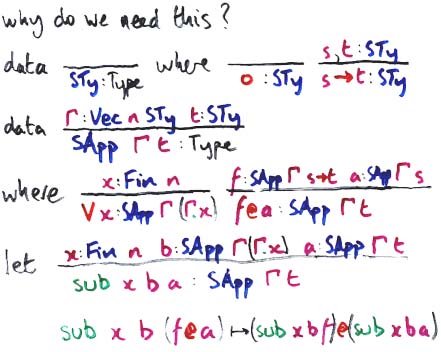 why do we need this?
data STy : Type where o : STy s, t : STy s→t : STy
data Γ : Vec n STy t : STy
SApp Γ t : Type
where x : Fin n f : SApp Γ s→t a : SApp Γ s
V x : SApp Γ (Γ.x) f@a : SApp Γ t
let x : Fin n b : SApp Γ (Γ.x) a : SApp Γ t
sub x b a : SApp Γ t
sub x b (f@a) ↦ (sub x b f)@(sub x b a)